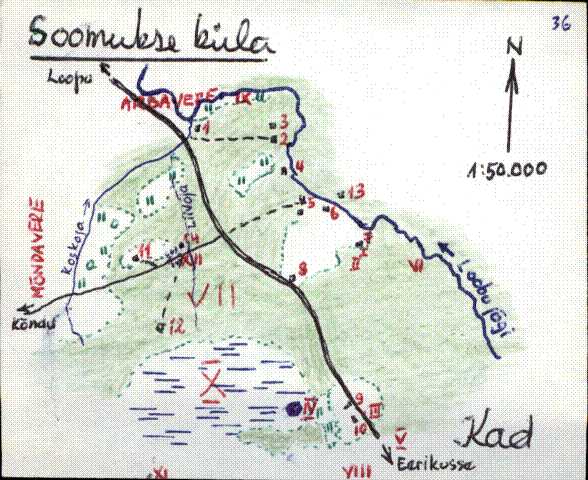 36
Soomukse küla
Loopo
N
1:50.000
ARBAVERE
IX
1
3
2
4
13
5
6
MÕNDAVERE
Koskoja
Liivoja
11
14
XII
7
II
VI
Loobu jõgi
8
VII
Kõndu
12
X
IV
9
III
10
Kad
V
Eerikusse
XI
VIII